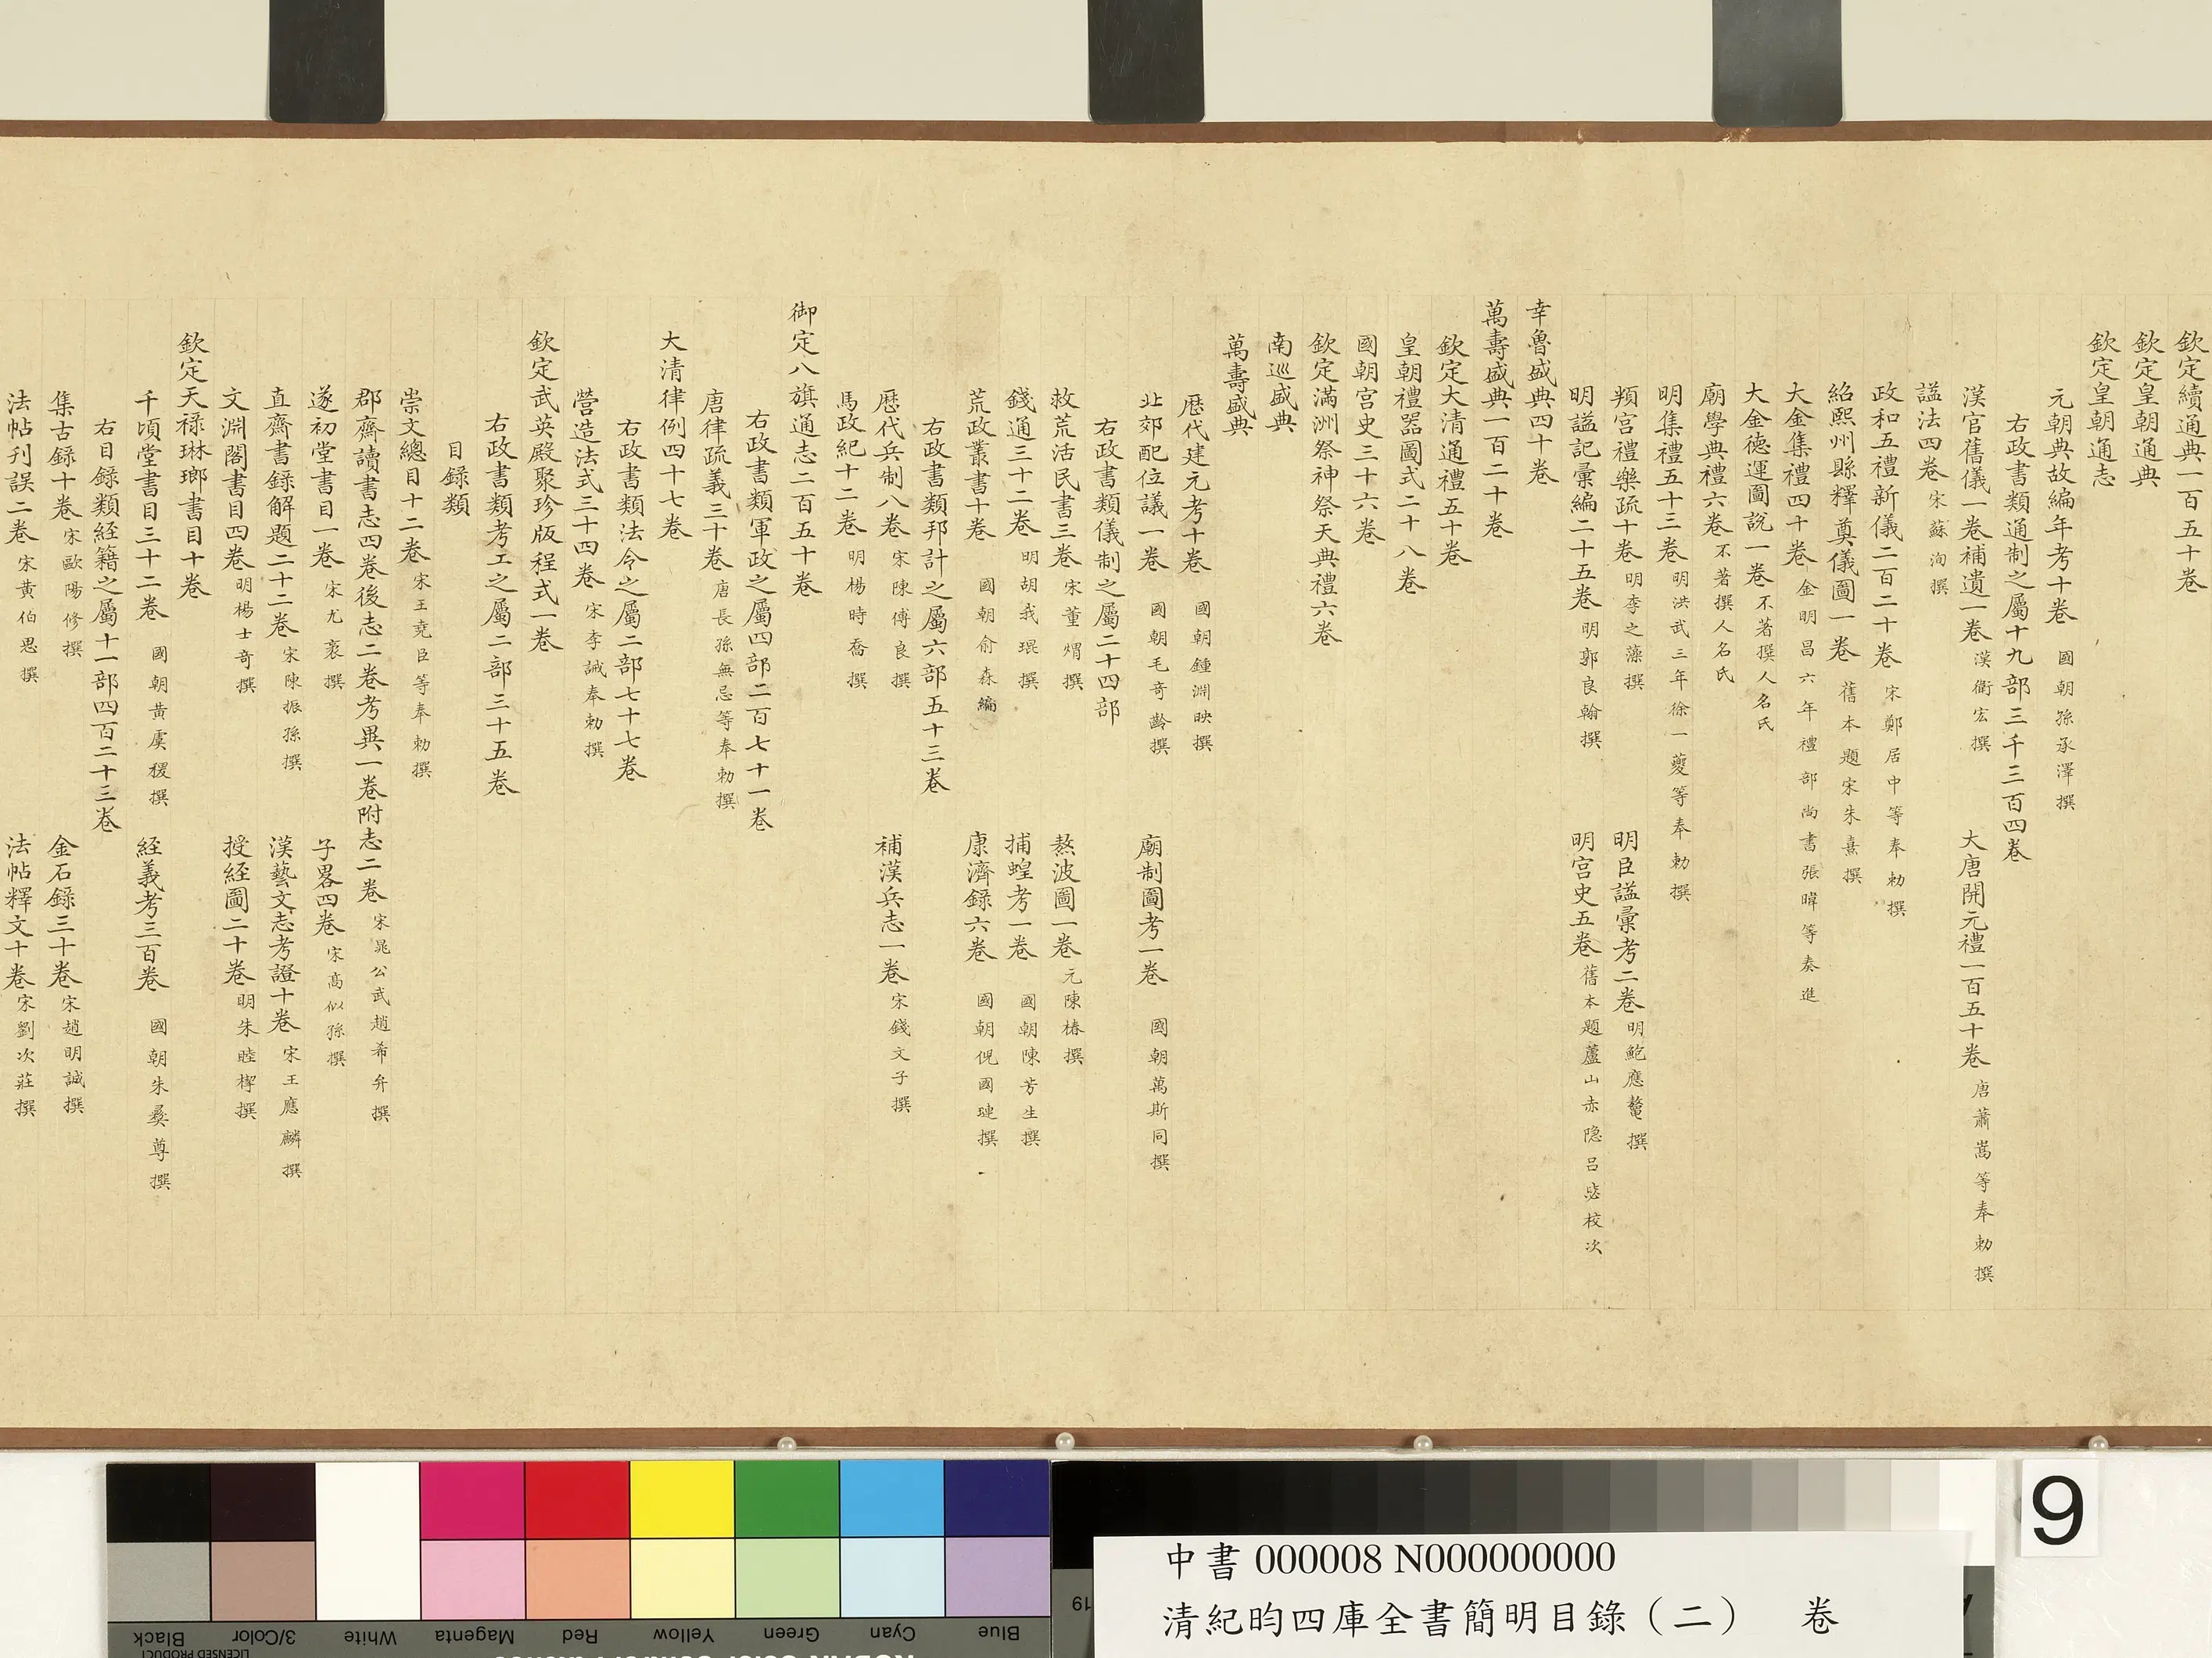 欽定續通典一百五十卷
欽定皇朝通典
欽定皇朝通志
元朝典故編年考十卷 國朝孫承澤撰
右政書類通制之屬十九部三千三百四卷
漢官舊儀一卷補遺一卷 漢衞宏撰 大唐開元禮一百五十卷 唐蕭嵩等奉勅撰
諡法四卷 宋蘇洵撰
政和五禮新儀二百二十卷 宋鄭居中等奉勅撰
紹熙州縣釋奠儀圖一卷 舊本題宋朱熹撰
大金集禮四十卷 金明昌六年禮部尚書張暐等奏進
大金德運圖說一卷 不著撰人名氏
廟學典禮六卷 不著撰人名氏
明集禮五十三卷 明洪武三年徐一夔等奉勅撰
頖宮禮樂疏十卷 明李之藻撰 明臣諡彙考二卷 明鮑應鰲撰
明諡記彙編二十五卷 明郭良翰撰 明宫史五卷 舊本題蘆山赤隐呂毖校次
幸魯盛典四十卷
萬壽盛典一百二十卷
欽定大清通禮五十卷
皇朝禮器圖式二十八卷
國朝宫史三十六卷
欽定滿洲祭神祭天典禮六卷
南巡盛典
萬壽盛典
歴代建元考十卷 國朝鍾淵映撰
北郊配位議一卷 國朝毛奇齡撰 廟制圖考一卷 國朝萬斯同撰
右政書類儀制之屬二十四部
救荒活民書三卷 宋董煟撰 熬波圖一卷 元陳椿撰
錢通三十二卷 明胡我琨撰 捕蝗考一卷 國朝陳芳生撰
荒政叢書十卷 國朝俞森編 康濟錄六卷 國朝倪國璉撰
右政書類邦計之屬六部五十三卷
歴代兵制八卷 宋陳傅良撰 補漢兵志一卷 宋錢文子撰
馬政紀十二卷 明楊時喬撰
御定八旗通志二百五十卷
右政書類軍政之屬四部二百七十一卷
唐律疏義三十卷 唐長孫無忌等奉勅撰
大清律例四十七卷
右政書類法令之屬二部七十七卷
營造法式三十四卷 宋李誡奉勅撰
欽定武英殿聚珍版程式一卷
右政書類考工之屬二部三十五卷
目録類
崇文總目十二卷 宋王堯臣等奉勅撰
郡齋讀書志四卷後志二卷考異一卷附志二卷 宋晁公武趙希弁撰
遂初堂書目一卷 宋尤袤撰 子畧四卷 宋高似孫撰
直齋書錄解題二十二卷 宋陳振孫撰 漢藝文志考證十卷 宋王應麟撰
文淵閣書目四卷 明楊士奇撰 授経圖二十卷 明朱睦㮮撰
欽定天禄琳瑯書目十卷
千頃堂書目三十二卷 國朝黄虞稷撰 経義考三百卷 國朝朱彝尊撰
右目録類経籍之屬十一部四百二十三卷
集古録十卷 宋歐陽修撰 金石錄三十卷 宋趙明誠撰
法帖刊誤二卷 宋黄伯思撰 法帖釋文十卷 宋劉次莊撰
9
中書 000008 N000000000
清紀昀四庫全書簡明目錄（二） 卷
Black 3/Color White Magenta Red Yellow Green Cyan Blue
LICENSED PRODUCT
19